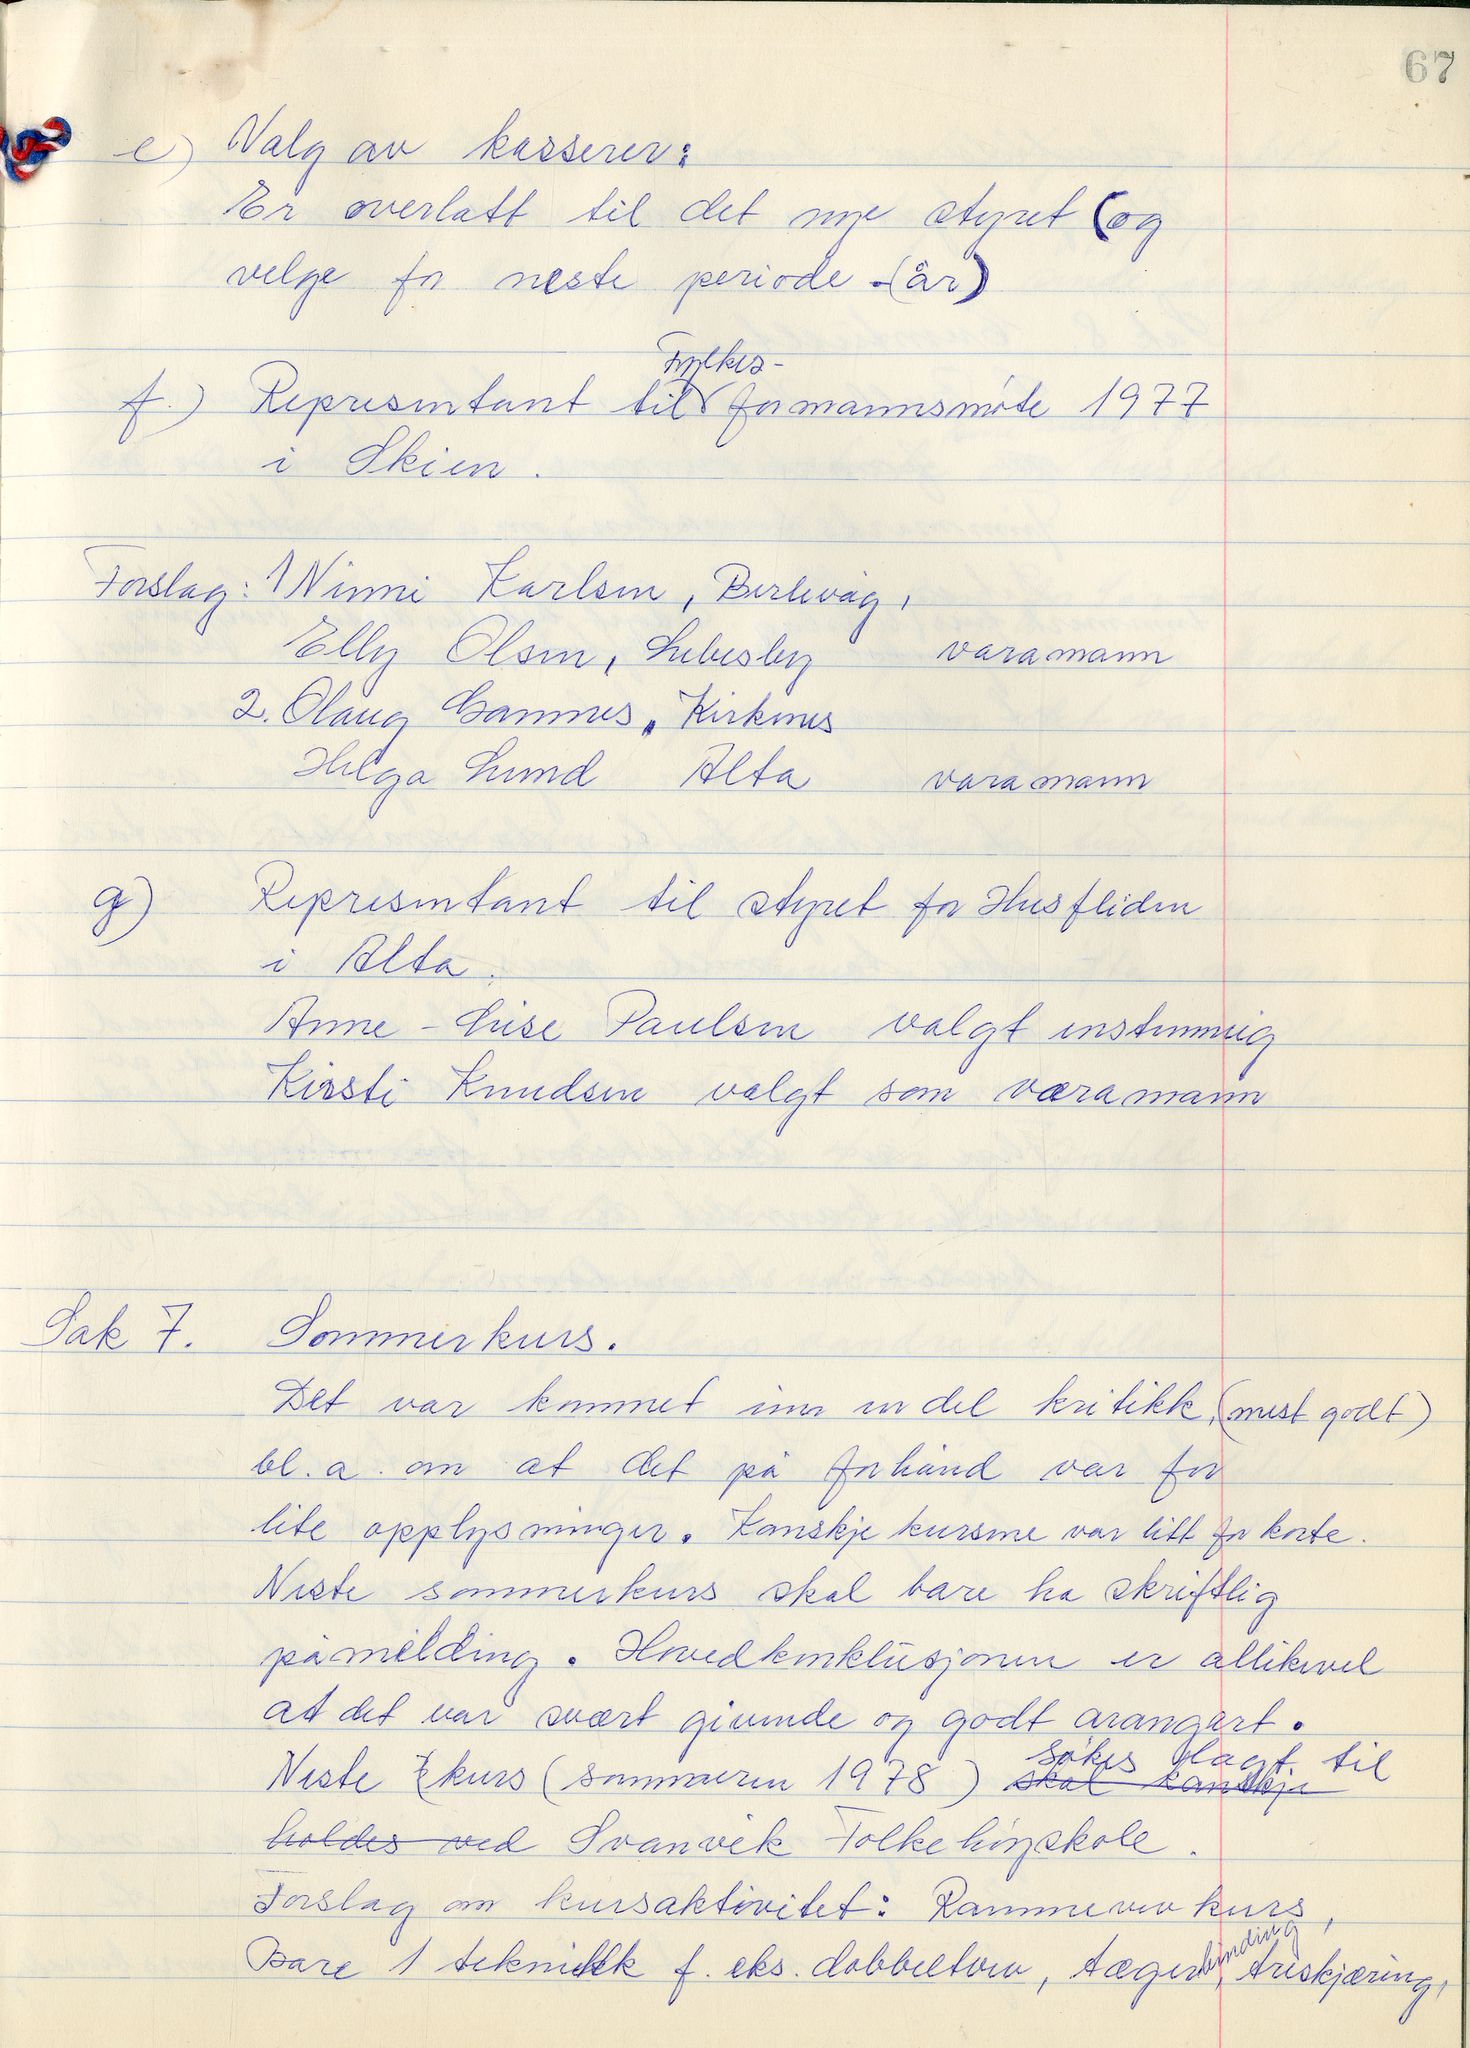 67
e) Valg av kasserer:
Er overlatt til det nye styret (og
velge for neste periode - (år)
f.) Representant til Fylkes-formannsmøte 1977
i Skien.
Forslag: 1 Ninni Karlsen, Berlevåg,
Elly Olsen, Lebesby varamann
2. Olaug Gamnes, Kirkenes
Helga Lund Alta varamann
g) Representant til styret for Husfliden
i Alta.
Anne-Lise Paulsen valgt enstemmig
Kirsti Knudsen valgt som varamann
Sak 7. Sommerkurs.
Det var kommet inn en del kritikk, (mest godt)
bl.a. om at det på forhånd var for
lite opplysninger. Kanskje kursene var litt for korte.
Neste sommerkurs skal bare ha skriftlig
påmelding. Hovedkonklusjonen er allikevel
at det var svært givende og godt arangert.
Neste kurs (sommeren 1978) skal kanskje søkes lagt til
holdes ved Svanvik Folkehøyskole.
Forslag om kursaktivitet: Rammevev kurs,
Bare 1 teknikk f. eks. dobbeltvev, tægerbinding, treskjæring,